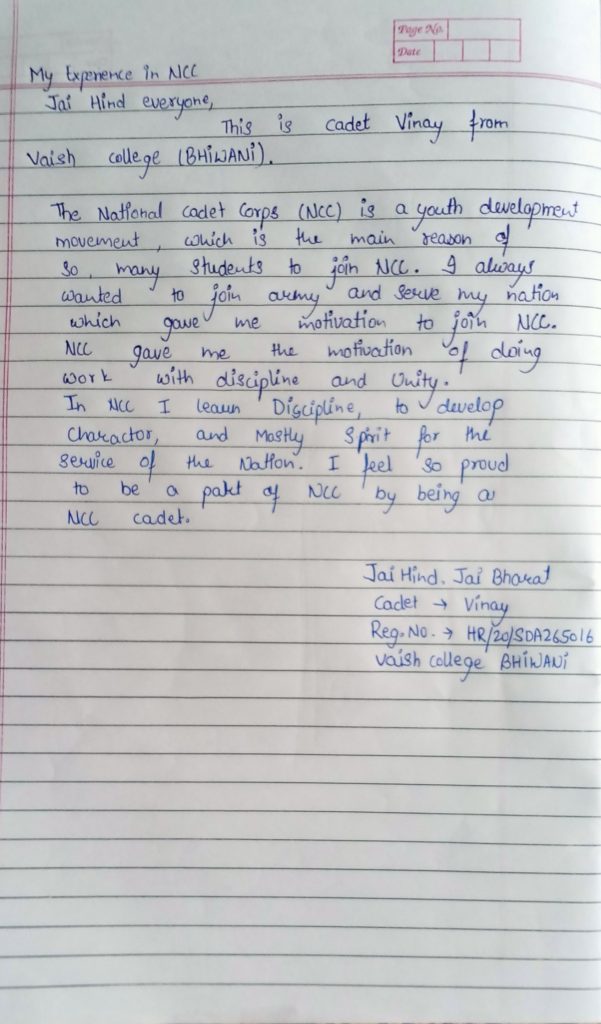 Page No.
Date
My Experience in NCC
Jai Hind everyone,
This is cadet Vinay from
Vaish college (BHiWANi).
The National cadet Corps (NCC) is a youth development
movement, which is the main reason of
so, many students to join NCC. I always
wanted to join army and serve my nation
which gave me motivation to join NCC.
NCC gave me the motivation of doing
work with discipline and Unity.
In NCC I learn Discipline, to develop
Charactor, and Mostly Spirit for the
service of the Nation. I feel so proud
to be a part of NCC by being a
NCC cadet.
Jai Hind. Jai Bharat
Cadet → Vinay
Reg. No. → HR/20/SDA265016
Vaish college BHiWANi